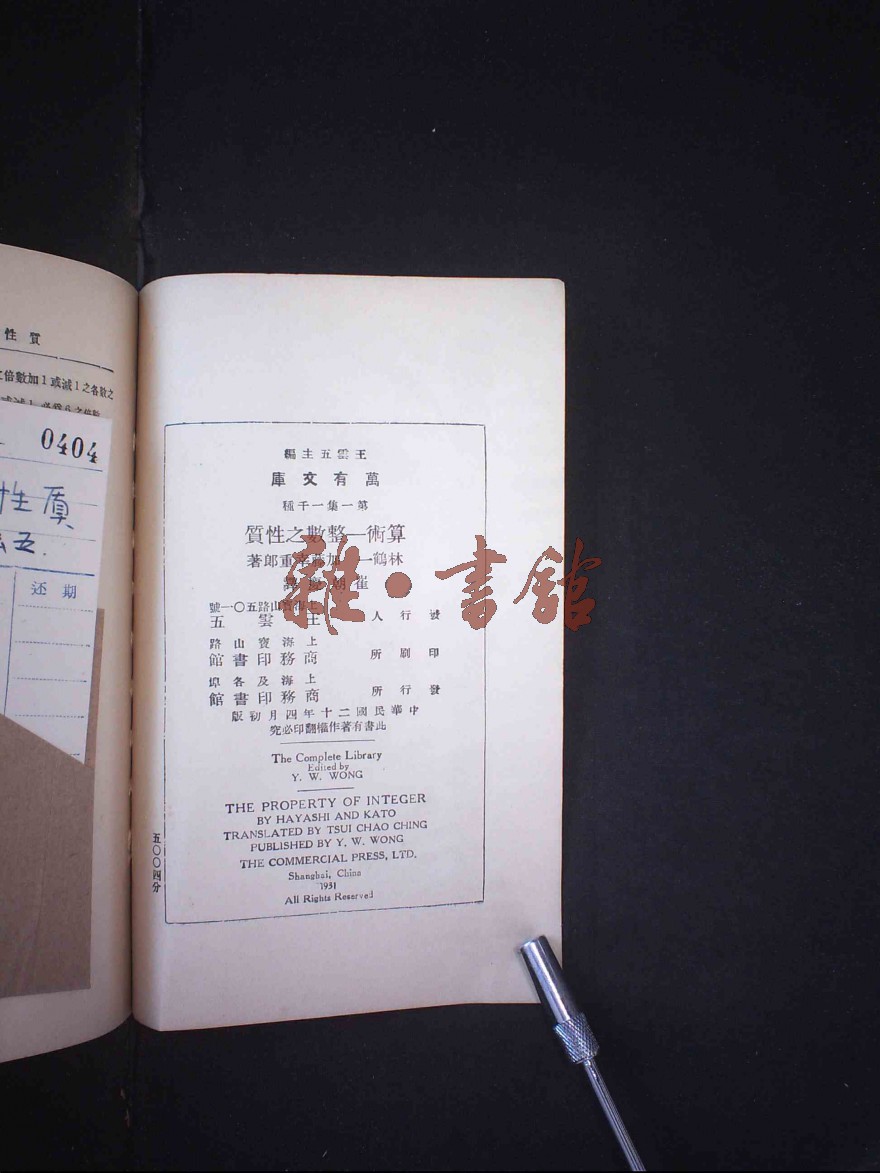 性質
倍數加1或減1之各數之
0404
性质
云五.
还期
王雲五主編
萬有文庫
第一集一千種
算術—整數之性質
林鶴一 加藤 重郎著
崔朝慶譯
發行人
上海寶山路五〇一號
王雲五
印刷所
上海寶山路
商務印書館
發行所
上海及各埠
商務印書館
中華民國二十年四月初版
此書有著作權翻印必究
The Complete Library
Edited by
Y. W. WONG
THE PROPERTY OF INTEGER
BY HAYASHI AND KATO
TRANSLATED BY TSUI CHAO CHING
PUBLISHED BY Y. W. WONG
THE COMMERCIAL PRESS, LTD.
Shanghai, China
1931
All Rights Reserved
五〇〇四分
雜·書館